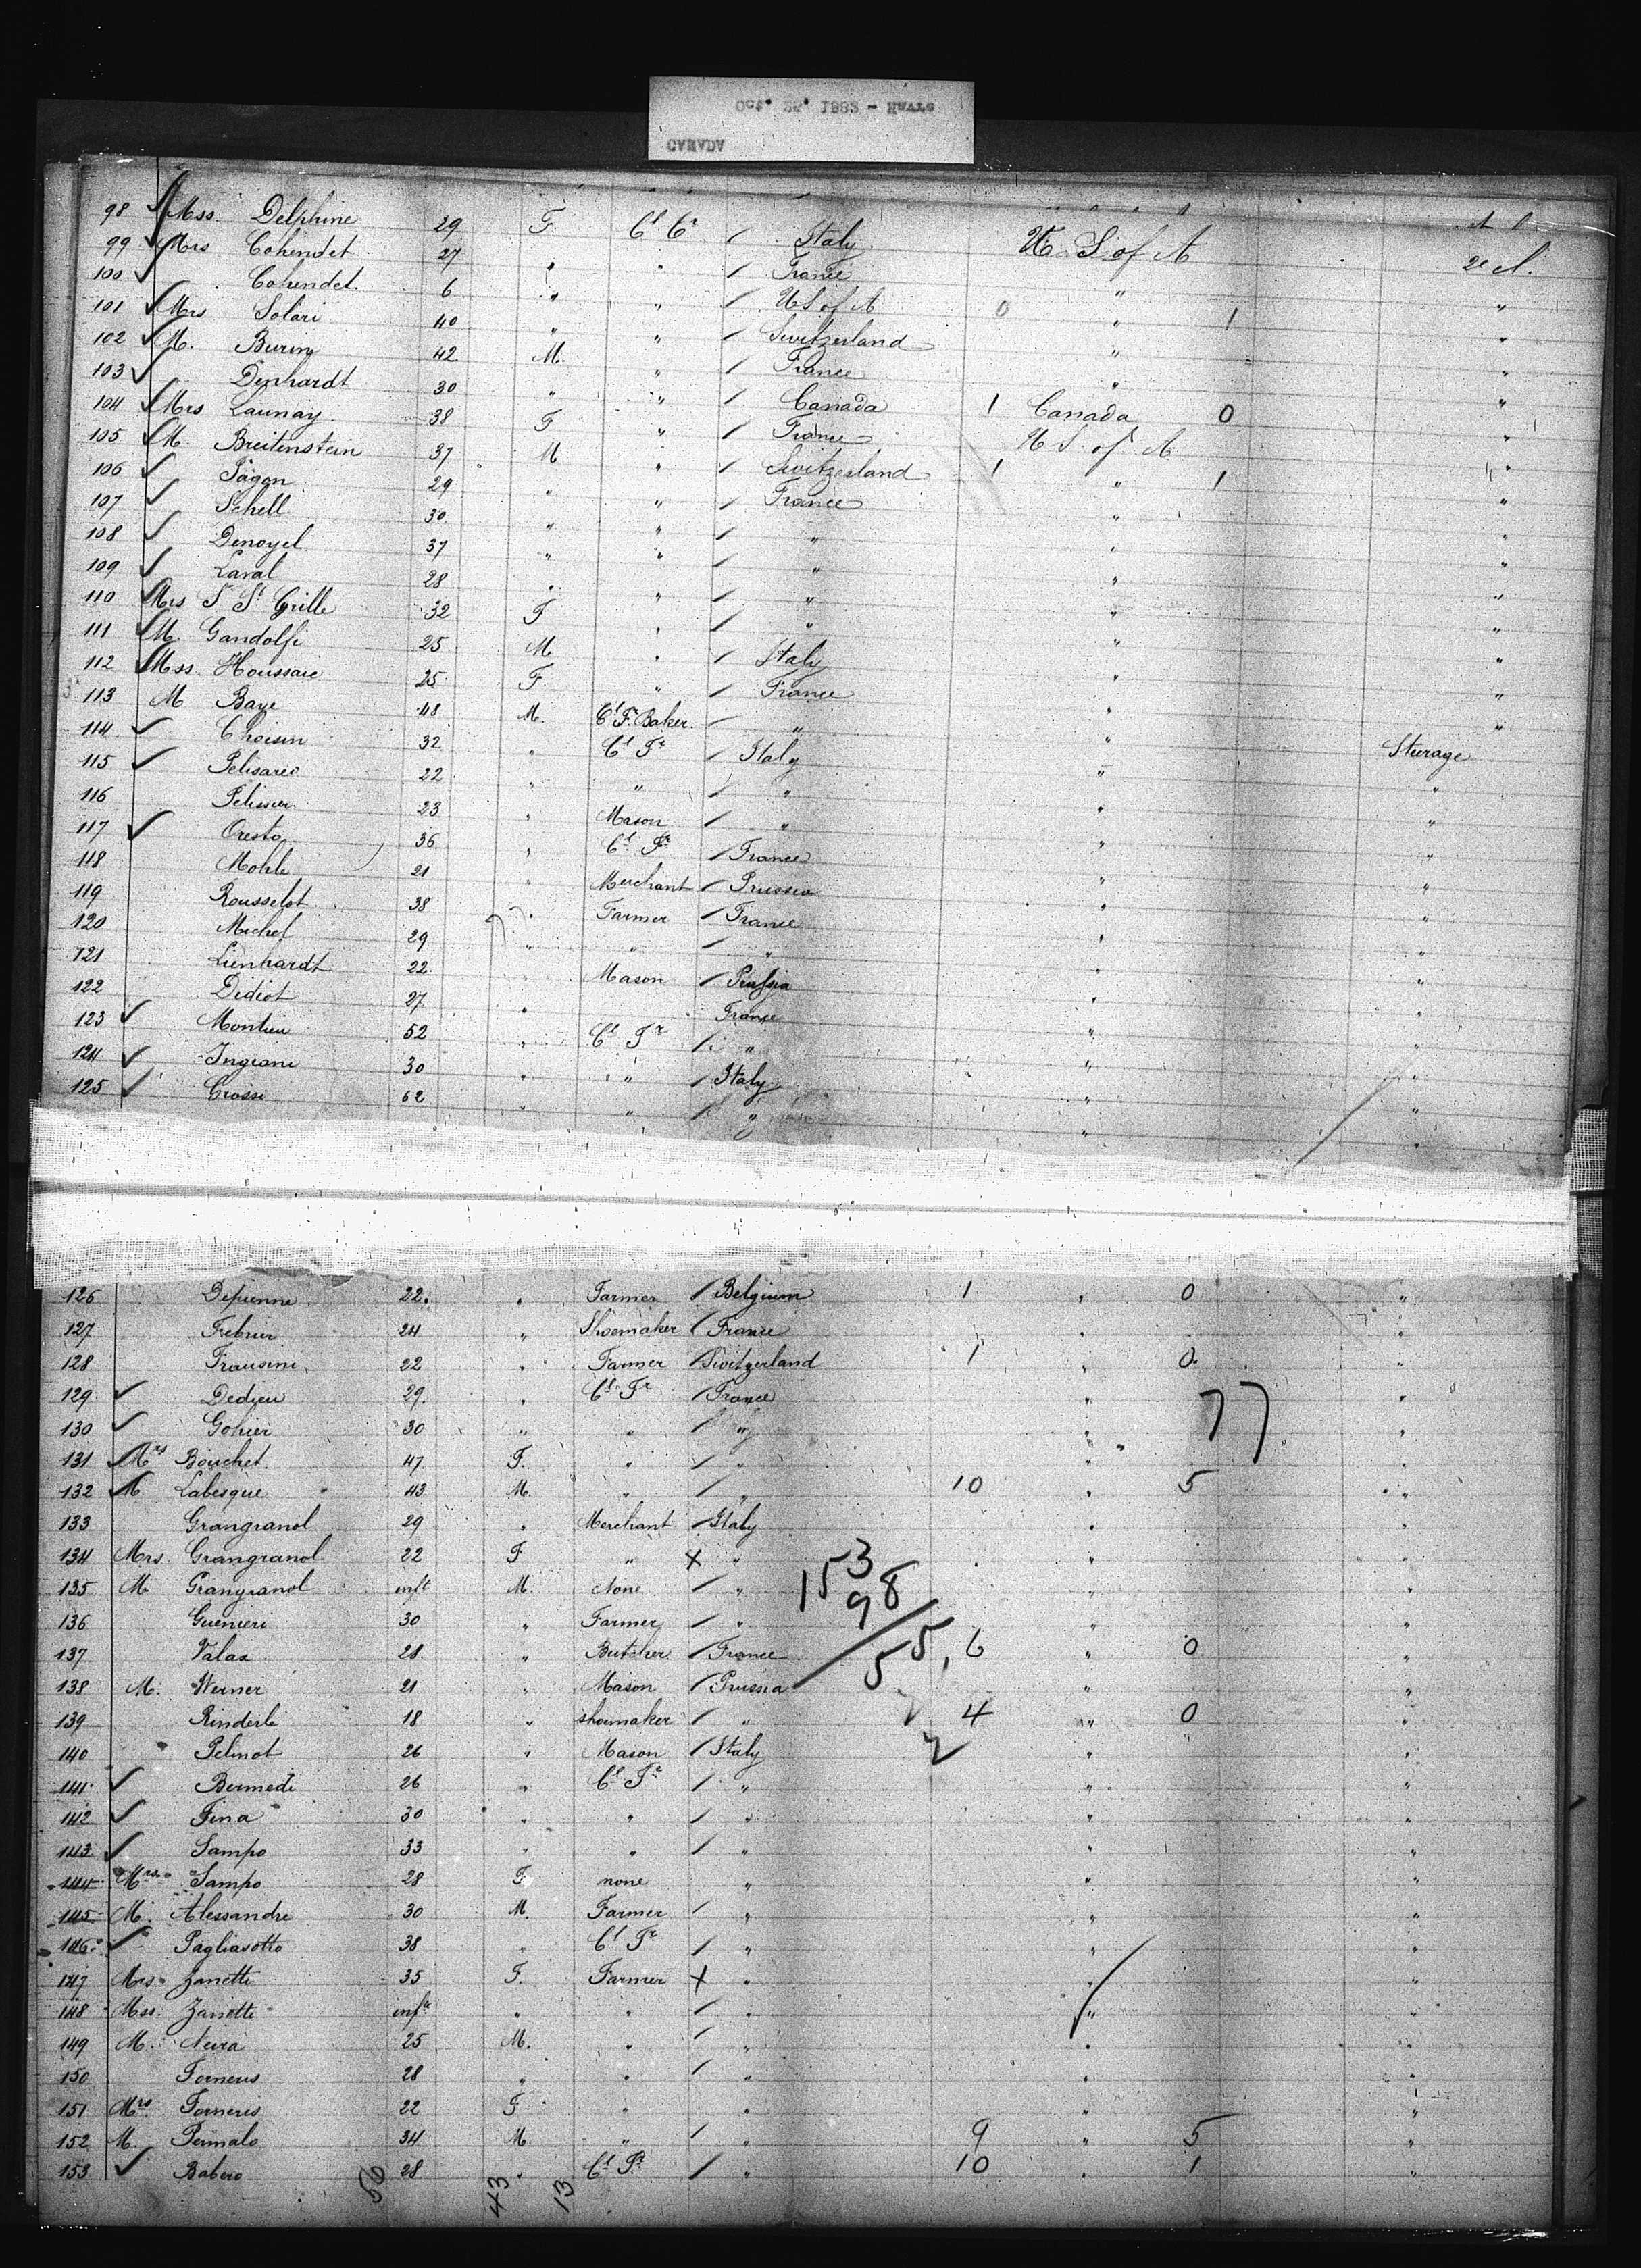 98 Mss. Delphine 29 F. Ct Cr Italy U. S. of A
99 Mrs Cohendet 27 " " France " 2e cl.
100 Cohendet 6 " " U S. of A 0 " 1 "
101 Mrs Solari 40 " " Switzerland " "
102 M. Burin 42 M. " France " "
103 Denhardt 30 " " Canada 1 Canada 0 "
104 Mrs Launay 38 F " France U S. of A "
105 M. Breitenstein 37 M " Switzerland 1 " 1 "
106 Pagon 29 " " France " "
107 Schell 30 " " " " "
108 Denoyel 37 " " " " "
109 Laval 28 " " " " "
110 Mrs St Grille 32 F " " " "
111 M. Gandolfi 25 M " Italy " "
112 Mss. Houssaie 25 F. " France " "
113 M Baye 48 M. Ct Fr. Baker " " "
114 Choisin 32 " Ct Fr Italy " Sturage
115 Pelisareo 22 " " " " "
116 Pelissier 23 " Mason " " "
117 Oresto 36 " Ct Fr France " "
118 Mohle 21 " Merchant Prussia " "
119 Rousselot 38 " Farmer France " "
120 Michel 29 " " " " "
121 Lienhardt 22 " Mason Prussia " "
122 Didiot 27 " France " "
123 Montieu 52 " Ct Fr " " "
124 Ingrani 30 " " Italy " "
125 Crossi 62 " " " " "
126 Depienne 22. " Farmer Belgium 1 " 0 "
127 Frebrier 24 " Shoemaker France " "
128 Frausini 22 " Farmer Switzerland 1 " 0 "
129 Dedieu 29. " Ct Fr France " "
130 Gohier 30 " " " " "
131 Mrs Bouchet 47 F. " " " "
132 M Labesque 43 M. " " 10 " 5 "
133 Grangranol 29 " Merchant Italy " "
134 Mrs. Grangranol 22 F " X " " "
135 M Grangranol inft M. None " " "
136 Guenieri 30 " Farmer " " "
137 Valax 28. " Butcher France 6 " 0 "
138 M. Werner 21 " Mason Prussia " "
139 Rinderle 18 " shoemaker " 4 " 0 "
140 Pelinot 26 " Mason Italy " "
141 Bermedi 26 " Ct Fr " " "
142 Fina 30 " " " " "
143 Sampo 33 " " " " "
144 Mrs Sampo 28 F. none " " "
145 M. Alessandre 30 M. Farmer " " "
146 Pagliasotto 38 " Ct Fr " " "
147 Mrs Zanetti 35 F. Farmer X " " "
148 Mss. Zanetti inft " " " " "
149 M. Neira 25 M. " " " "
150 Forneris 28 " " " " "
151 Mrs Forneris 22 F " " " "
152 M Permalo 34 M. " " 9 " 5 "
153 Babero 28 " Ct Fr " 10 " 1 "
77
153
98
55
56 43 13